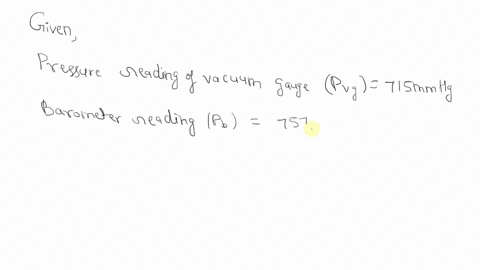 Given,
Pressure reading of vacuum gauge (Pvg) = 715mmHg
Barometer reading (Pb) = 757